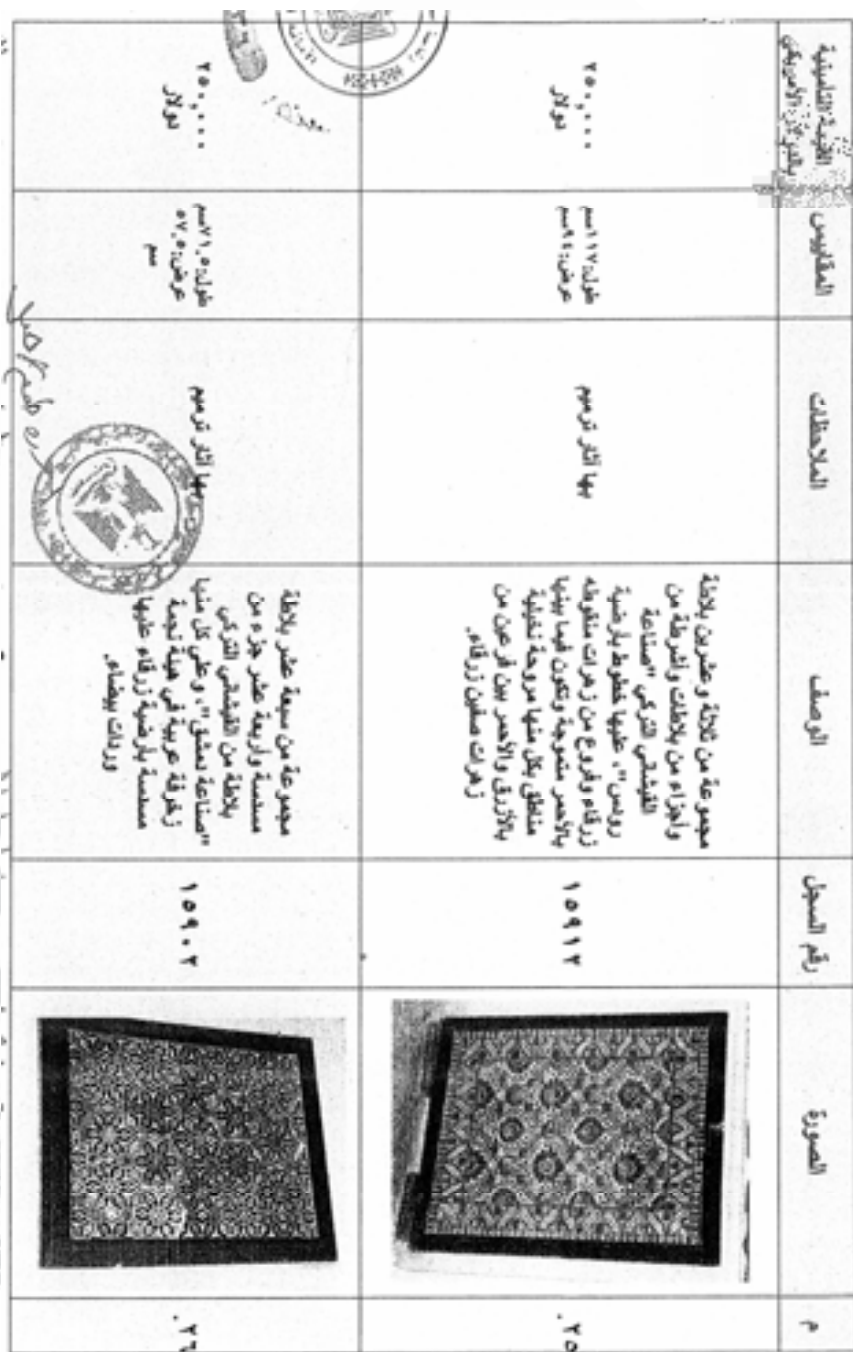 م
الصورة
رقم السجل
الوصف
الملاحظات
المقاييس
القيمة التأمينية
٢٥.
١٥٩١٢
مجموعة من ثلاثة وعشرين بلاطة
وأجزاء من بلاطات وأشرطة من
القيشاني التركي "صناعة
رودس"، عليها خطوط بأرضية
زرقاء وفروع من زهرات منقوطه
بالأحمر متموجة وتكون فيما بينها
مناطق بكل منها مروحة نخيلية
بالأزرق والأحمر بين فرعين من
زهرات صفين زرقاء.
بها آثار ترميم
طول: ١١٧سم
عرض: ٩٤سم
٢٥٠,٠٠٠
دولار
٢٦.
١٥٩٠٢
مجموعة من سبعة عشر بلاطة
مسدسة وأربعة عشر جزء من
بلاطة من القيشاني التركي
"صناعة دمشق"، وعلي كل منها
زخرفة عربية في هيئة نجمة
مسدسة بأرضية زرقاء عليها
وردات بيضاء.
بها آثار ترميم
طول: ٧١,٥سم
عرض: ٥٧,٥
سم
٢٥٠,٠٠٠
دولار